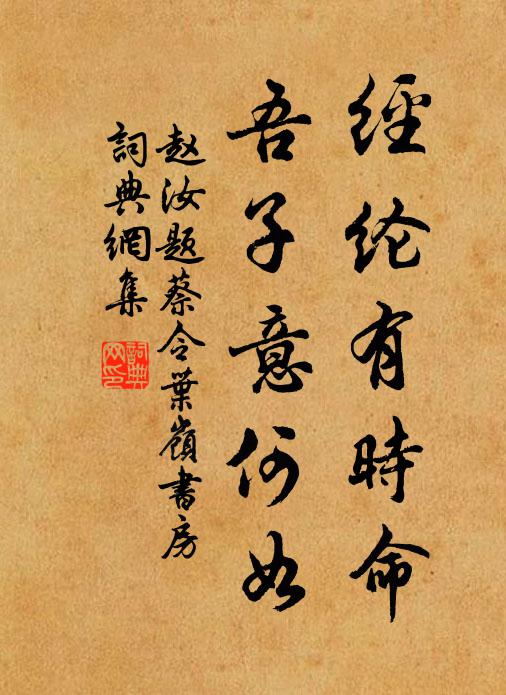 經纶有時命
吾子意何如
赵汝题蔡令葉嶺書房
詞典網集
詞典网印